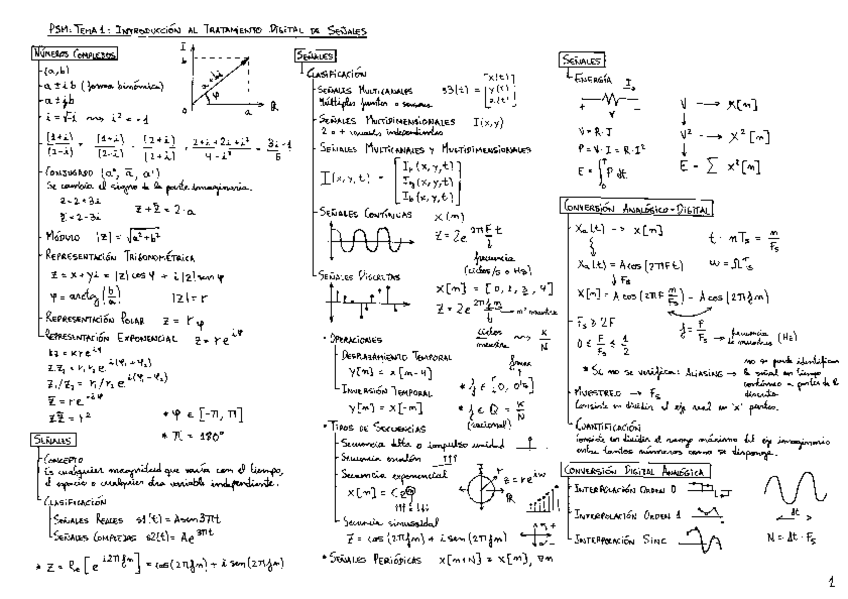 PSM: TEMA 1: INTRODUCCIÓN AL TRATAMIENTO DIGITAL DE SEÑALES
NÚMEROS COMPLEJOS
(a,b)
a ± i b (forma binómica)
a ± j b
i = √-1 ⟿ i² = -1
(1+i)/(2-i) = (1+i)/(2-i) · (2+i)/(2+i) = (2+i+2i+i²)/(4-i²) = (3i+1)/5
CONJUGADO (a*, ā, a')
Se cambia el signo de la parte imaginaria.
z = 2+3i
z̄ = 2-3i
z + z̄ = 2·a
MÓDULO |z| = √(a²+b²)
REPRESENTACIÓN TRIGONOMÉTRICA
z = x + yi = |z| cos φ + i |z| sen φ
φ = arctg (b/a) |z| = r
REPRESENTACIÓN POLAR z = r φ
REPRESENTACIÓN EXPONENCIAL z = r e^{iφ}
kz = k r e^{iφ}
z z₁ = r₁ r₂ e^{i(φ₁+φ₂)}
z₁/z₂ = r₁/r₂ e^{i(φ₁-φ₂)}
z̄ = r e^{-iφ}
z z̄ = r²
* φ ∈ [-π, π]
* π = 180°
SEÑALES
CONCEPTO
Es cualquier magnitud que varía con el tiempo,
el espacio o cualquier otra variable independiente.
CLASIFICACIÓN
SEÑALES REALES s1(t) = A sen 3πt
SEÑALES COMPLEJAS s2(t) = A e^{3πt}
* z = Re [e^{i2πfn}] = cos(2πfn) + i sen(2πfn)
I
b
a+bi
φ
0
a
R
SEÑALES
CLASIFICACIÓN
SEÑALES MULTICANALES s3(t) = [x(t) y(t) z(t)]
Múltiples fuentes o sensores
SEÑALES MULTIDIMENSIONALES I(x,y)
2 o + variables independientes
SEÑALES MULTICANALES Y MULTIDIMENSIONALES
I(x,y,t) = [I_r(x,y,t) I_g(x,y,t) I_b(x,y,t)]
SEÑALES CONTINUAS x(n)
z = 2e^{2πFt}
frecuencia
(ciclos/s o Hz)
SEÑALES DISCRETAS
x[n] = [0, 1, 2, 4]
z = 2e^{2πfn} → nº muestra
ciclos/muestra ⟿ k/N
OPERACIONES
DESPLAZAMIENTO TEMPORAL
y[n] = x[n-4]
INVERSIÓN TEMPORAL
y[n] = x[-n]
* f ∈ Q = k/N
(racional)
TIPOS DE SECUENCIAS
Secuencia delta o impulso unidad
Secuencia escalón
Secuencia exponencial
z = r e^{iω}
I
R
Secuencia sinusoidal
z = cos(2πfn) + i sen(2πfn)
* SEÑALES PERIÓDICAS x[n+N] = x[n], ∀n
SEÑALES
ENERGÍA
I
+ V -
V = R·I
P = V·I = R·I²
E = ∫₀ᵀ P dt
V → x[n]
V² → x²[n]
E = Σ x²[n]
CONVERSIÓN ANALÓGICO-DIGITAL
xₐ(t) → x[n]
t = nTₛ = n/Fₛ
xₐ(t) = A cos(2πFt) ω = ΩTₛ
Fₛ
x[n] = A cos(2πF n/Fₛ) = A cos(2πfn)
Fₛ ≥ 2F
0 ≤ F/Fₛ ≤ 1/2
f = F/Fₛ → frecuencia de muestreo (Hz)
* Si no se verifica: ALIASING → no se puede identificar
la señal en tiempo
continuo a partir de la
discreta
MUESTREO → Fₛ
Consiste en dividir el eje real en 'x' partes.
CUANTIFICACIÓN
Consiste en dividir el rango máximo del eje imaginario
entre tantos números como se disponga.
CONVERSIÓN DIGITAL ANALÓGICA
INTERPOLACIÓN ORDEN 0
INTERPOLACIÓN ORDEN 1
INTERPOLACIÓN SINC
Δt
N = Δt · Fₛ
1